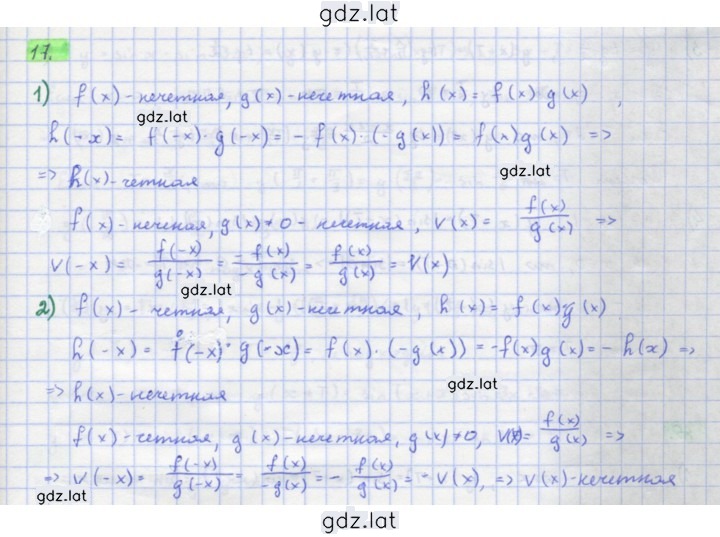 gdz.lat
17.
1) f(x) - нечетная, g(x) - нечетная, h(x) = f(x) g(x),
gdz.lat
h(-x) = f(-x)·g(-x) = - f(x)·(-g(x)) = f(x)g(x) =>
gdz.lat
=> h(x)-четная
f(x) - неченая, g(x)≠0 - нечетная, v(x) = f(x)/g(x) =>
v(-x) = f(-x)/g(-x) = -f(x)/-g(x) = f(x)/g(x) = V(x)
gdz.lat
2) f(x) - четная, g(x) - нечетная, h(x) = f(x)g(x)
h(-x) = f(-x)·g(-x) = f(x)·(-g(x)) = -f(x)g(x) = - h(x) =>
gdz.lat
=> h(x) - нечетная
f(x) - четная, g(x) - нечетная, g(x)≠0, v(x) = f(x)/g(x) =>
=> v(-x) = f(-x)/g(-x) = f(x)/-g(x) = - f(x)/g(x) = - v(x), => v(x) - нечетная
gdz.lat
gdz.lat